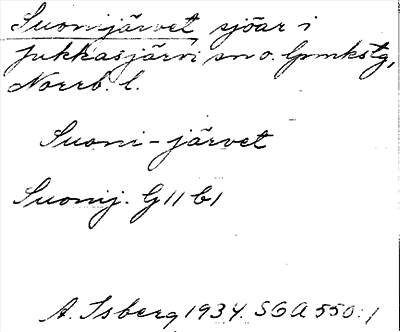 Suonijärvet sjöar i
Jukkasjärvi sn o. lpmkstg,
Norrb. l.
Suoni-järvet
Suonij. G 11 b1
A. Isberg 1934. SOA 550:1